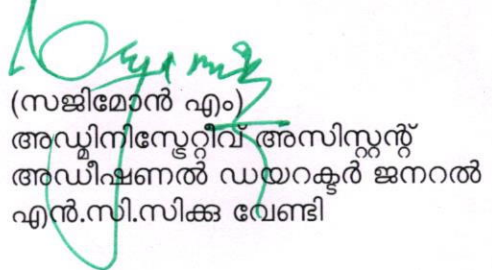 (സജിമോൻ എം)
അഡ്മിനിസ്ട്രേറ്റീവ് അസിസ്റ്റന്റ്
അഡീഷണൽ ഡയറക്ടർ ജനറൽ
എൻ.സി.സിക്കു വേണ്ടി